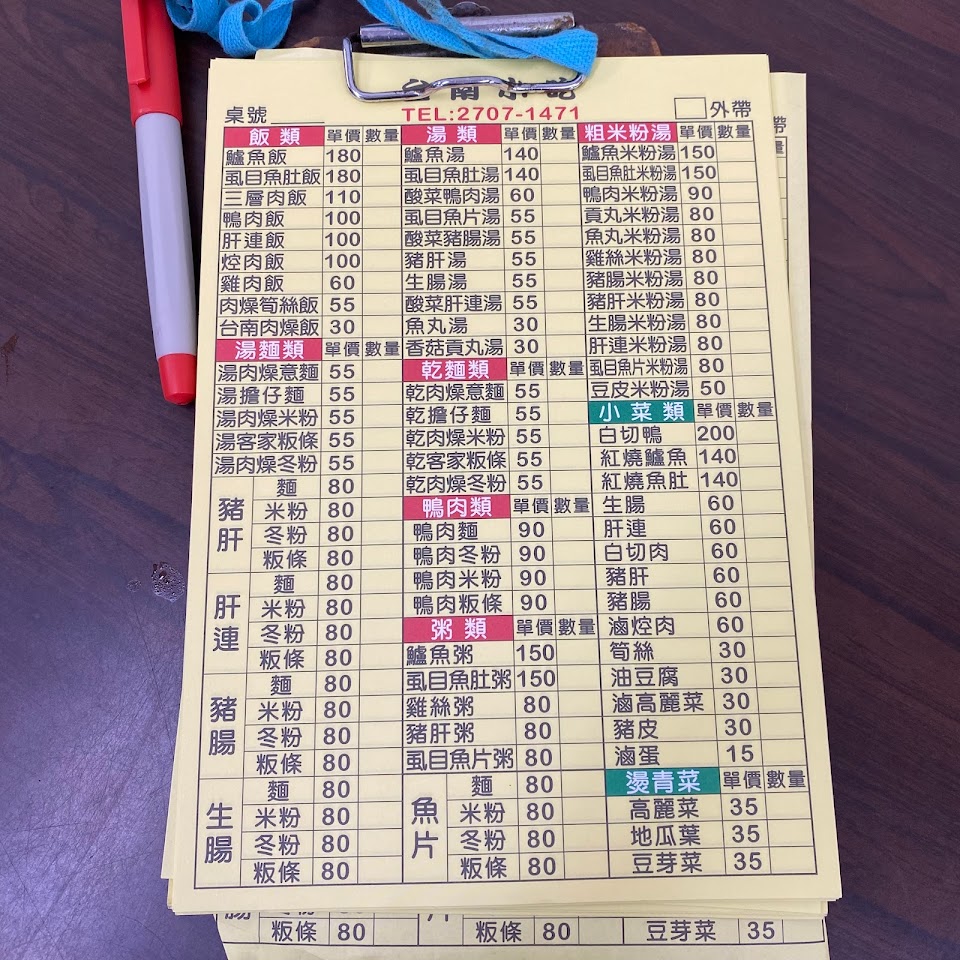 台南小吃
桌號 TEL:2707-1471 外帶
飯類 單價 數量
鱸魚飯 180
虱目魚肚飯 180
三層肉飯 110
鴨肉飯 100
肝連飯 100
焢肉飯 100
雞肉飯 60
肉燥筍絲飯 55
台南肉燥飯 30
湯麵類 單價 數量
湯肉燥意麵 55
湯擔仔麵 55
湯肉燥米粉 55
湯客家粄條 55
湯肉燥冬粉 55
豬肝
麵 80
米粉 80
冬粉 80
粄條 80
肝連
麵 80
米粉 80
冬粉 80
粄條 80
豬腸
麵 80
米粉 80
冬粉 80
粄條 80
生腸
麵 80
米粉 80
冬粉 80
粄條 80
湯類 單價 數量
鱸魚湯 140
虱目魚肚湯 140
酸菜鴨肉湯 60
虱目魚片湯 55
酸菜豬腸湯 55
豬肝湯 55
生腸湯 55
酸菜肝連湯 55
魚丸湯 30
香菇貢丸湯 30
乾麵類 單價 數量
乾肉燥意麵 55
乾擔仔麵 55
乾肉燥米粉 55
乾客家粄條 55
乾肉燥冬粉 55
鴨肉類 單價 數量
鴨肉麵 90
鴨肉冬粉 90
鴨肉米粉 90
鴨肉粄條 90
粥類 單價 數量
鱸魚粥 150
虱目魚肚粥 150
雞絲粥 80
豬肝粥 80
虱目魚片粥 80
魚片
麵 80
米粉 80
冬粉 80
粄條 80
粗米粉湯 單價 數量
鱸魚米粉湯 150
虱目魚肚米粉湯 150
鴨肉米粉湯 90
貢丸米粉湯 80
魚丸米粉湯 80
雞絲米粉湯 80
豬腸米粉湯 80
豬肝米粉湯 80
生腸米粉湯 80
肝連米粉湯 80
虱目魚片米粉湯 80
豆皮米粉湯 50
小菜類 單價 數量
白切鴨 200
紅燒鱸魚 140
紅燒魚肚 140
生腸 60
肝連 60
白切肉 60
豬肝 60
豬腸 60
滷焢肉 60
筍絲 30
油豆腐 30
滷高麗菜 30
豬皮 30
滷蛋 15
燙青菜 單價 數量
高麗菜 35
地瓜葉 35
豆芽菜 35
粄條 80 粄條 80 豆芽菜 35